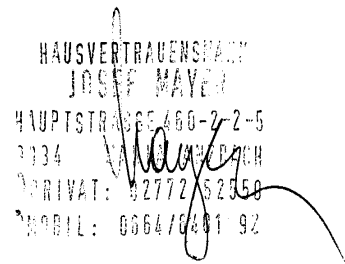 HAUSVERTRAUENSMANN
JOSEF MAYER
HAUPTSTRASSE 460-2-2-5
PRIVAT: 02772/52550
MOBIL: 0664/8401 92
Mayer